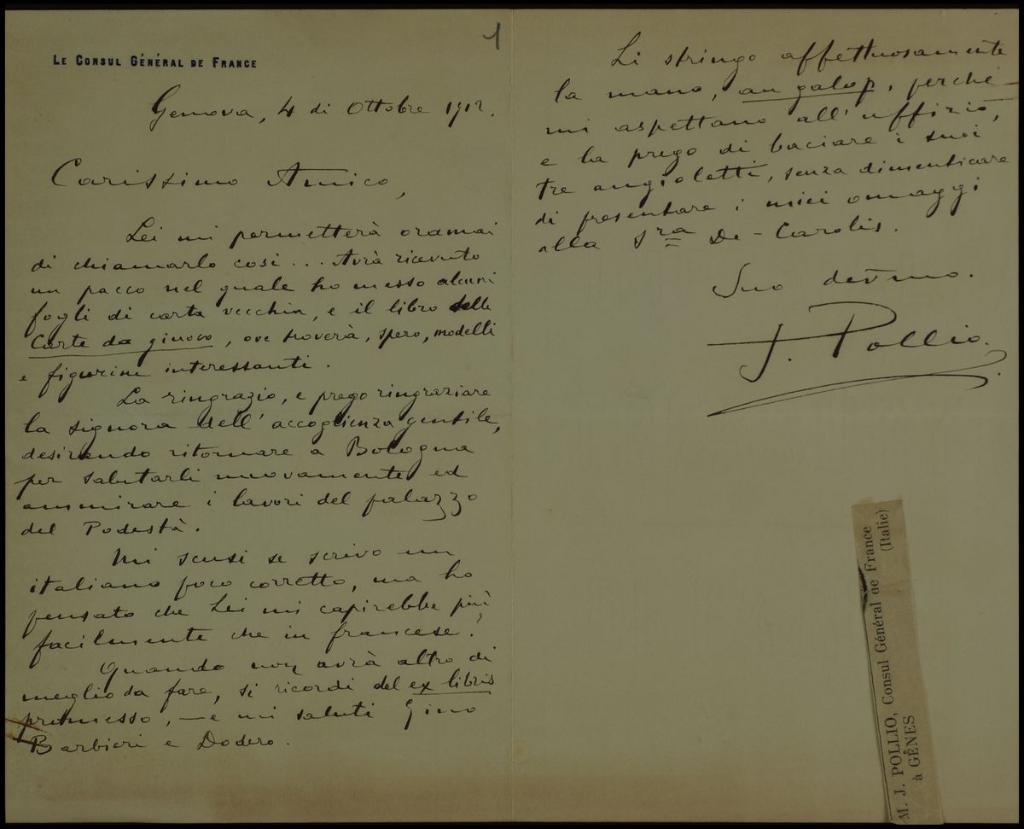 1
LE CONSUL GÉNÉRAL DE FRANCE
Genova, 4 di Ottobre 1912.
Carissimo Amico,
Lei mi permetterà oramai
di chiamarlo così... Avrà ricevuto
un pacco nel quale ho messo alcuni
fogli di carta vecchia, e il libro delle
Carte da giuoco, ove troverà, spero, modelli
e figurine interessanti.
La ringrazio, e prego ringraziare
la signora dell'accoglienza gentile,
desirando ritornare a Bologna
per salutarli nuovamente ed
ammirare i lavori del palazzo
del Podestà.
Mi scusi se scrivo un
italiano poco corretto, ma ho
pensato che Lei mi capirebbe più
facilmente che in francese.
Quando non avrà altro di
meglio da fare, si ricordi del ex libris
promesso, — e mi saluti Gino
Barbieri e Dodero.
Li stringo affettuosamente
la mano, au galop, perchè
mi aspettano all'uffizio,
e la prego di baciare i suoi
tre angioletti, senza dimenticare
di presentare i miei omaggi
alla Sra De-Carolis.
Suo devmo.
J. Pollio.
M. J. POLLIO, Consul Général de France
à GÊNES (Italie)